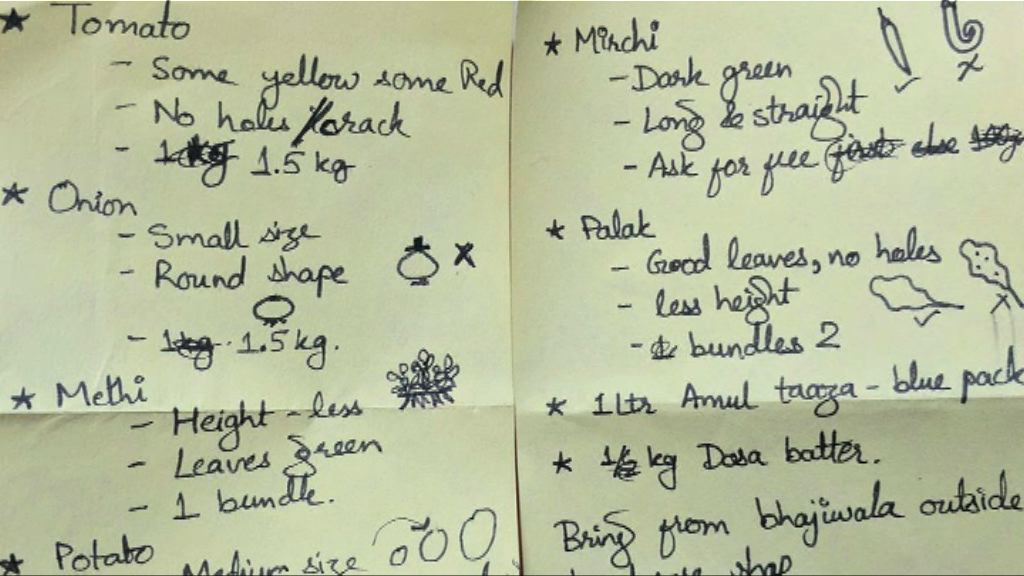 ★ Tomato
- Some yellow some Red
- No holes / crack
- 1kg 1.5 kg
★ Onion
- Small size
- Round shape
- 1kg. 1.5 kg.
★ Methi
- Height - less
- Leaves green
- 1 bundle.
★ Potato
Medium size
★ Mirchi
- Dark green
- Long & straight
- Ask for free
★ Palak
- Good leaves, no holes
- less height
- bundles 2
★ 1 ltr Amul taaza - blue pack
★ 1/2 kg Dosa batter.
Bring from bhajiwala outside
shop